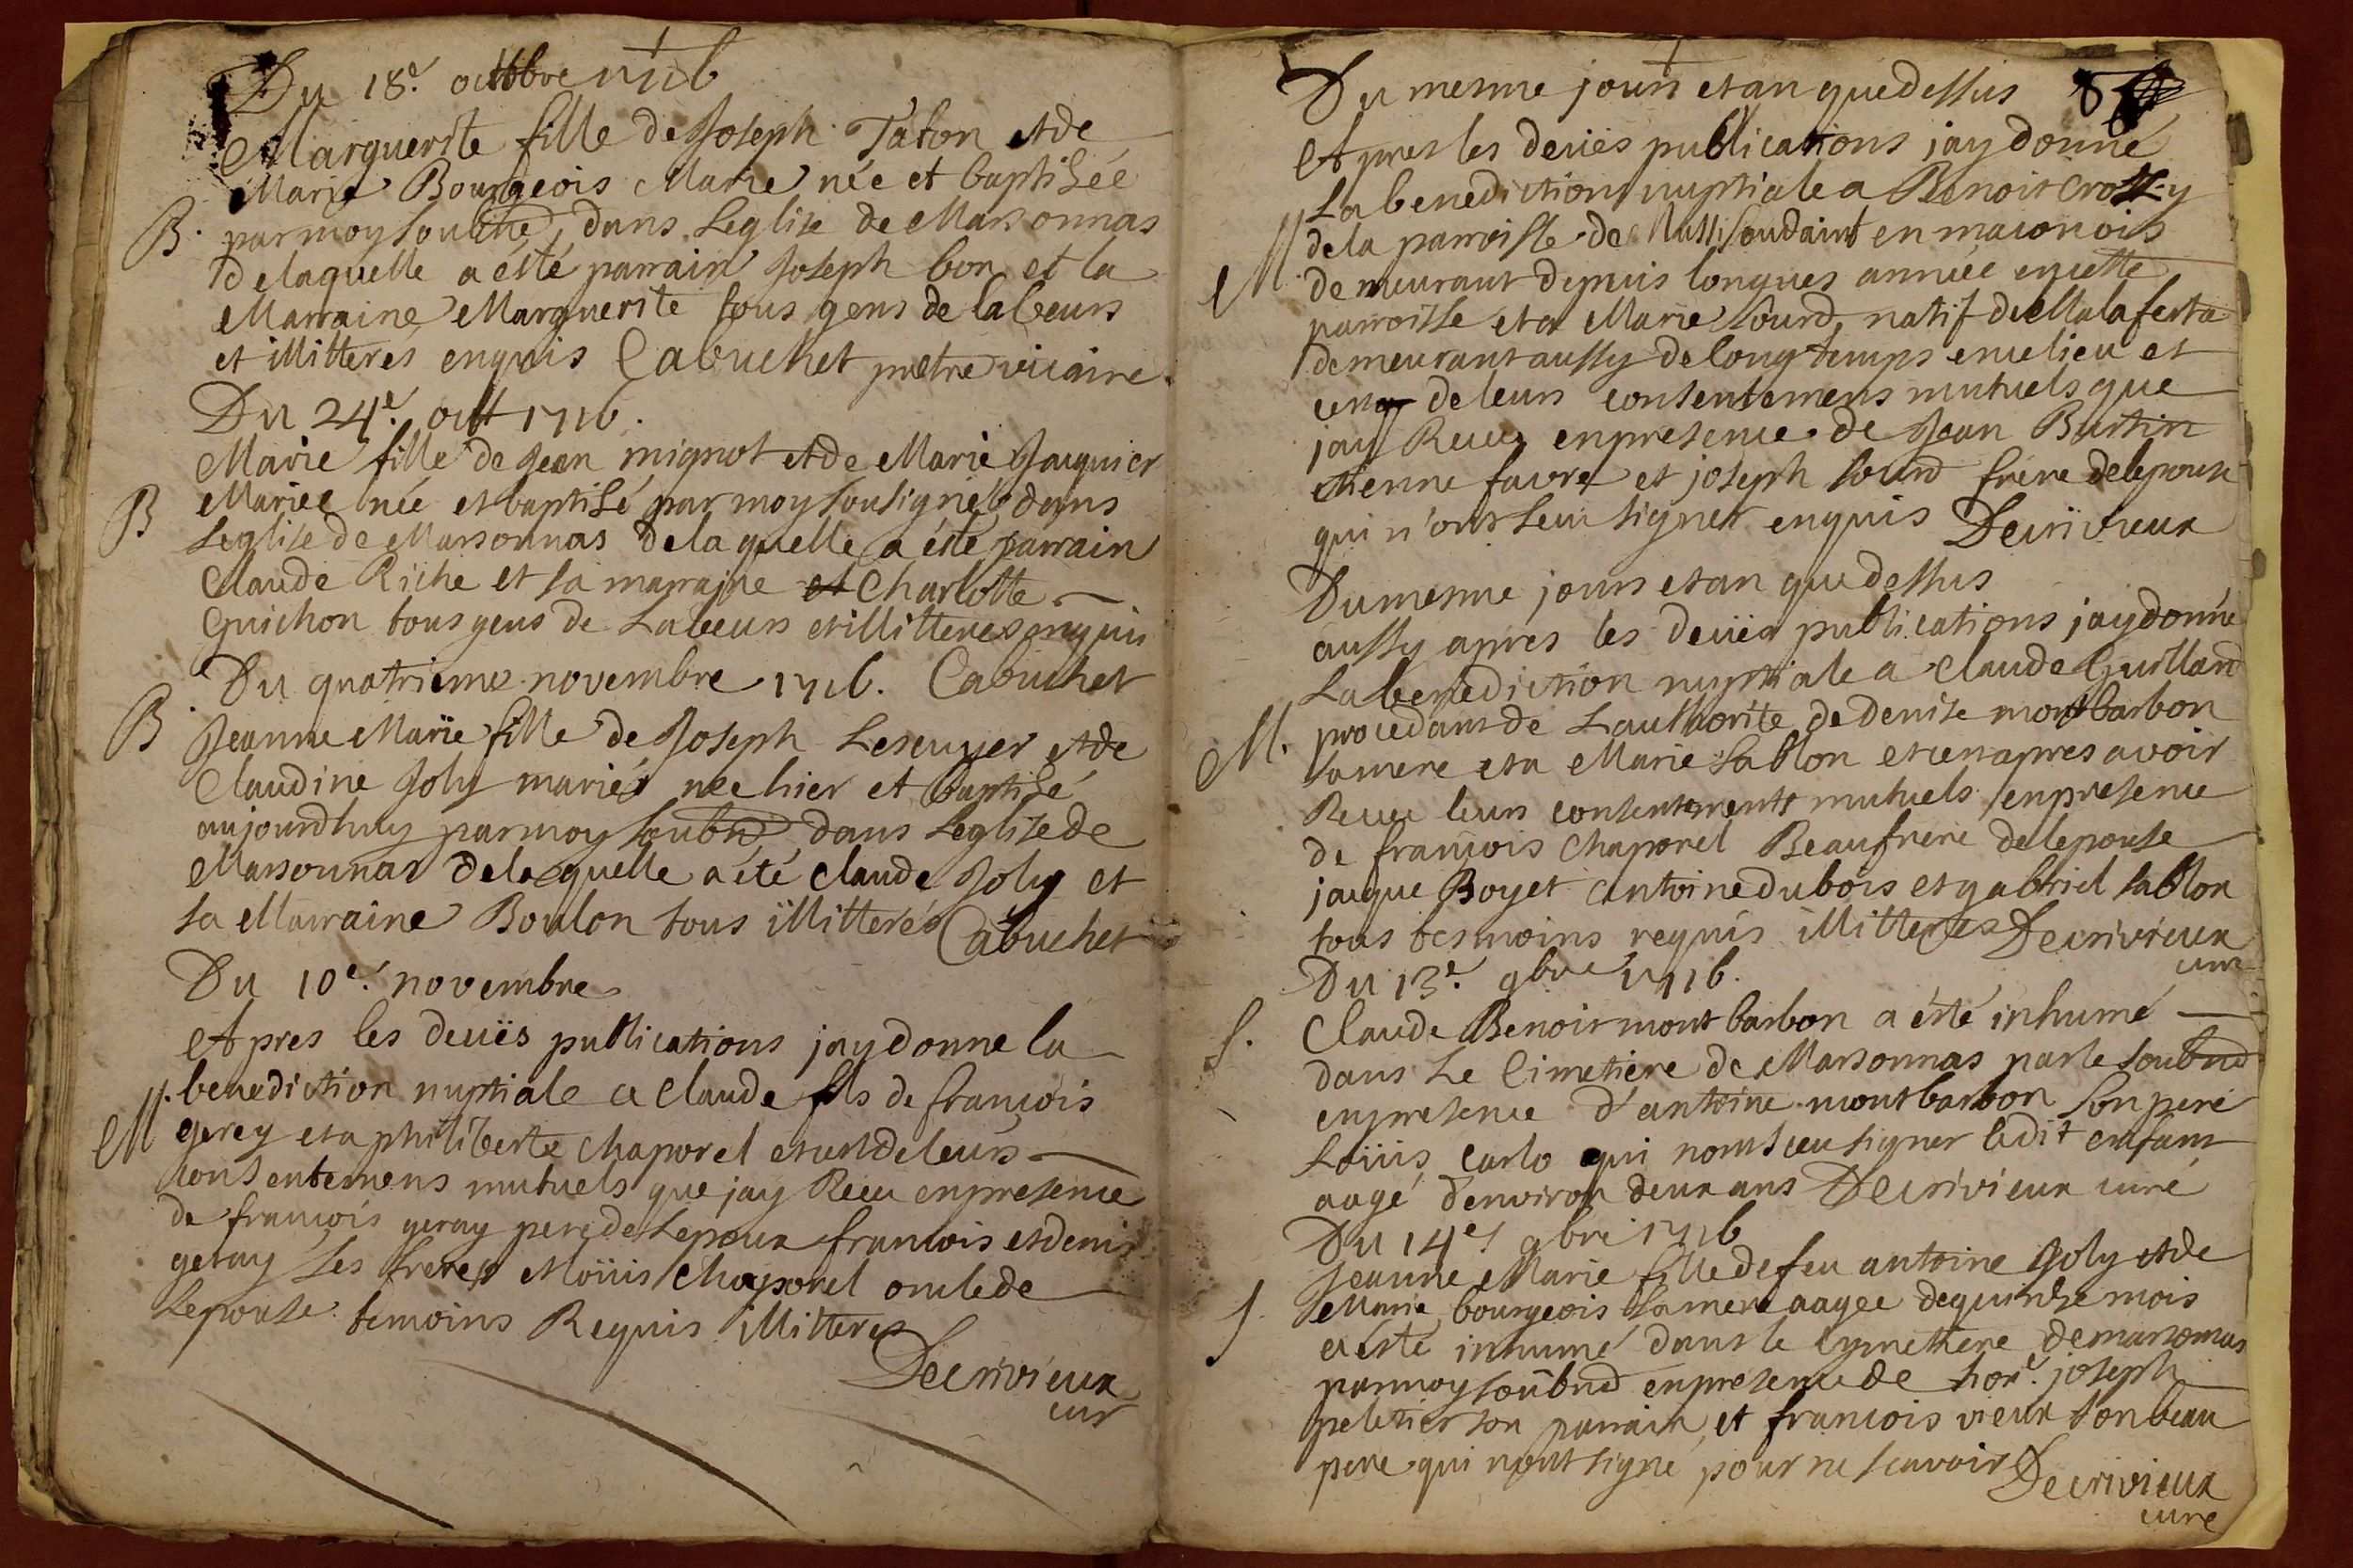 Du 18e. octobre 1716
Marguerite fille de Joseph Taton et de
Marie Bourgeois Marie née et baptisée
B. par moy soubné dans Leglise de Marsonnas
de laquelle a esté parrain Joseph bon et la
Marraine Marguerite tous gens de labeurs
et illitterés enquis Cabuchet pretre vicaire.
Du 24e. oct 1716.
Marie fille de Jean mignot et de Marie Jaquier
B Mariee née et baptisé par moy sousigné dans
Leglise de Marsonnas de laquelle a été parrain
Claude Riche et sa marraine et Charlotte
Guichon tous gens de Labeurs et illitteres enquis
Du quatrieme novembre 1716. Cabuchet
B Jeanne Marie fille de Joseph Lescuyer et de
Claudine Joly mariés née hier et baptisé
aujourdhuy par moy soubné dans Leglise de
Marsonnas de laquelle a été Claude Joly et
sa Marraine Boulon tous illitterés Cabuchet
Du 10e. novembre
Apres les deuës publications jay donne la
benediction nuptiale a claude fils de francois
M. gerey et a philiberte Chaporel et ce de leurs
consentemens mutuels que jay Receu en presence
de francois geray pere de Lepoux francois et denis
geray ses freres Chaporel oncle de
Lepouse temoins Requis illitteres
Decrivieux
cur
Du mesme jours et an que dessus 8
Apres les deuës publications jay donné
La benediction nuptiale a Benoit
de la parroisse de en maconois
M demeurant depuis longues année en cette
parroisse et a Marie sourd natif de Malaferta
demeurant aussy de longtemps en ce lieu et
ce de leurs consentemens mutuels que
jay Receu en presence de Jean Burtin
etienne favre et joseph sourd frere de lepouse
qui n'ont sceu signer enquis Decrivieux
Du mesme jours et an que dessus
aussy apres les deuës publications jay donné
La benediction nuptiale a claude Guillard
M. procedant de Lauthorite de denise montbarbon
sa mere et a Marie sablon et ce apres avoir
Receu leurs consentements mutuels en presence
de francois Chaporel Beaufrere de lepouse
jaque Boyet antoine dubois et gabriel sablon
tous tesmoins requis illitteres Decrivieux
cur
Du 13e. 9bre 1716.
S. Claude Benoit montbarbon a été inhumé
dans Le Cimetiere de Marsonnas par le soubné
en presence d'antoine montbarbon son pere
Loüis Carlo qui nont sceu signer ledit enfant
aagé d'environ deux ans Decrivieux curé
Du 14e 9bre 1716
Jeanne Marie fille de feu antoine Joly et de
S. Marie bourgeois sa mere aagee de quinze mois
a esté inhumé dans le cymettiere de marsonnas
par moy soubné en presence de hon. joseph
peletier son parrain et francois vieux son beau
pere qui nont signé pour ne scavoir Decrivieux
curé